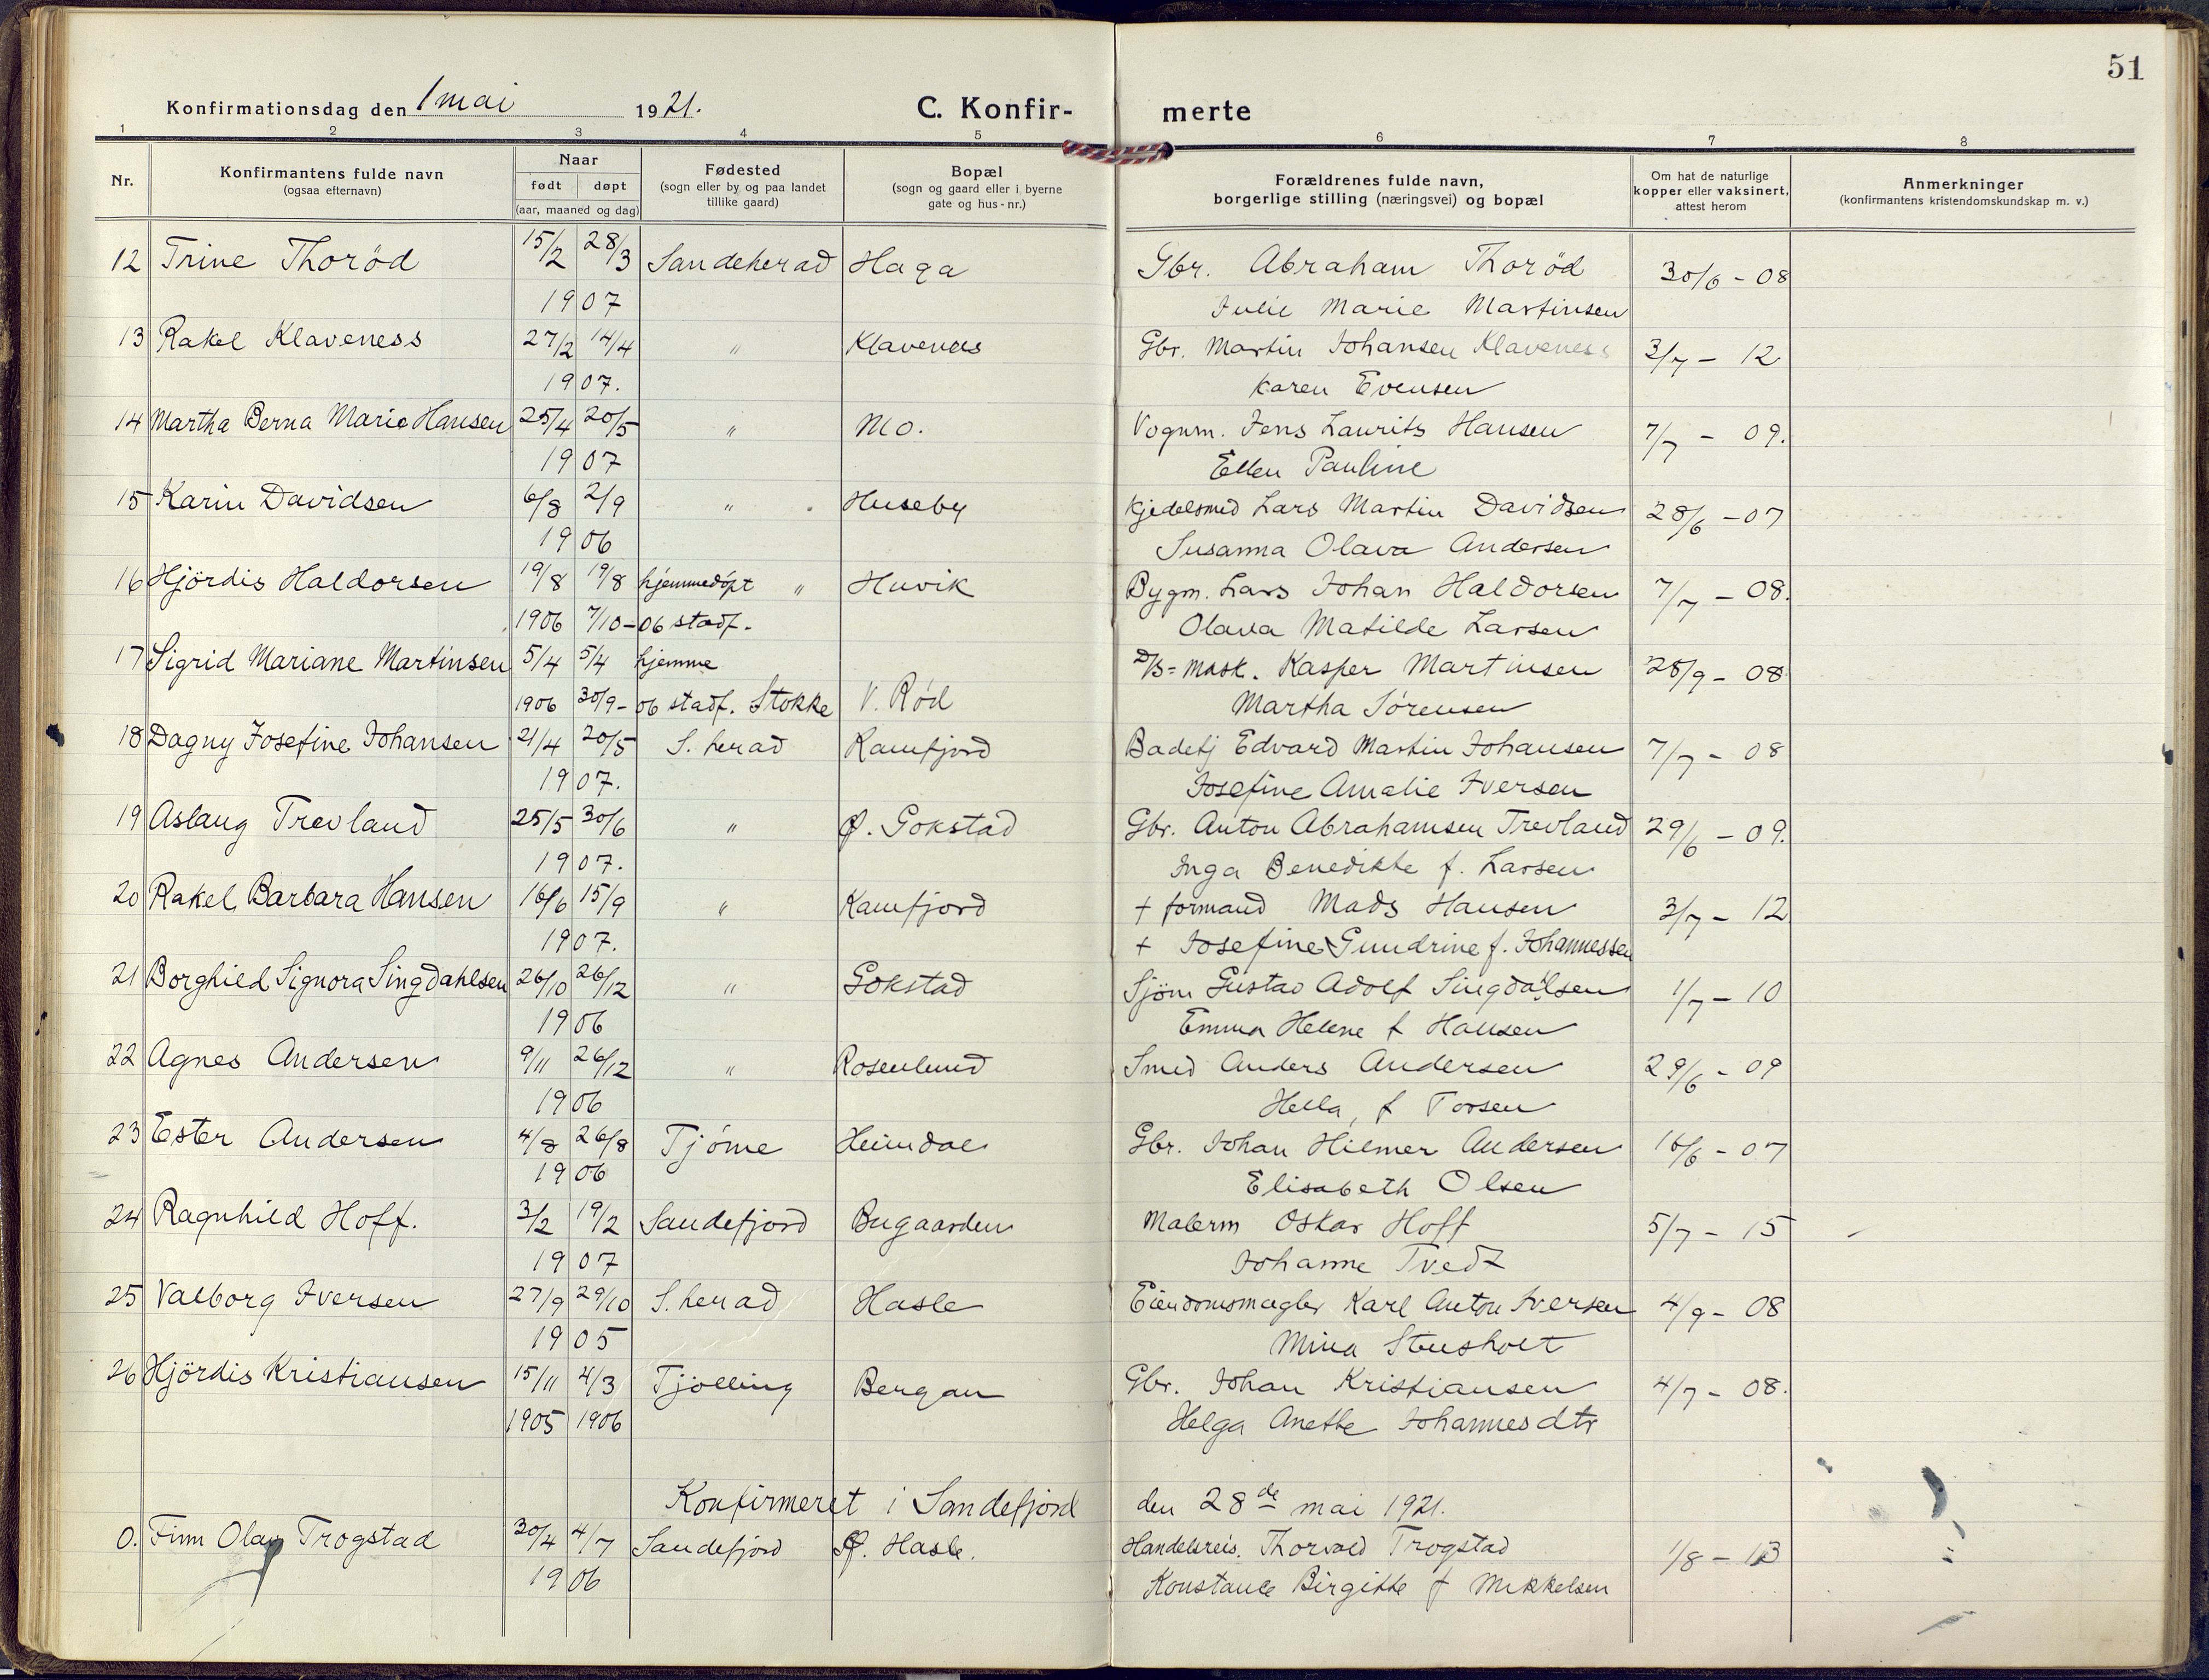 51
Konfirmationsdag den 1 mai 1921.
C. Konfir- merte
1 2 3 4 5 6 7 8
Nr.
Konfirmantens fulde navn
(ogsaa efternavn)
Naar
født døpt
(aar, maaned og dag)
Fødested
(sogn eller by og paa landet
tillike gaard)
Bopæl
(sogn og gaard eller i byerne
gate og hus-nr.)
Forældrenes fulde navn,
borgerlige stilling (næringsvei) og bopæl
Om hat de naturlige
kopper eller vaksinert,
attest herom
Anmerkninger
(konfirmantens kristendomskundskap m. v.)
12 Trine Thorød 15/2 28/3 Sandeherad Haga Gbr. Abraham Thorød 30/6 - 08
1907 Julie Marie Martinsen
13 Rakel Klaveness 27/2 14/4 " Klavenes Gbr. Martin Johansen Klaveness 3/7 - 12
1907. Karen Evensen
14 Martha Berna Marie Hansen 25/4 20/5 " Mo. Vognm. Jens Laurits Hansen 7/7 - 09.
1907 Ellen Pauline
15 Karin Davidsen 6/8 2/9 " Huseby Kjedelsmed Lars Martin Davidsen 28/6 - 07
1906 Susanna Olava Andersen
16 Hjördis Haldorsen 19/8 19/8 hjemmedöpt " Huvik Bygm. Lars Johan Haldorsen 7/7 - 08.
1906 7/10-06 stadf. Olava Matilde Larsen
17 Sigrid Mariane Martinsen 5/4 5/4 hjemme D/S= mask. Kasper Martinsen 28/9 - 08
1906 30/9-06 stadf. Stokke V. Rød Martha Sørensen
18 Dagny Josefine Johansen 21/4 20/5 S. herad Kamfjord Badetj Edvard Martin Johansen 7/7 - 08
1907. Josefine Amalie Iversen
19 Aslaug Trevland 25/5 30/6 " Ø. Gokstad Gbr. Anton Abrahamsen Trevland 29/6 - 09.
1907. Inga Benedikte f. Larsen
20 Rakel Barbara Hansen 16/6 15/9 " Kamfjord + formand Mads Hansen 3/7 - 12
1907. + Josefine Gundrine f. Johannessen
21 Borghild Signora Singdahlsen 26/10 26/12 " Gokstad Sjöm Gustav Adolf Singdalsen 1/7 - 10
1906 Emma Helene f Hansen
22 Agnes Andersen 9/11 26/12 " Rosenlund Smed Anders Andersen 29/6 - 09
1906 Hella, f Torsen
23 Ester Andersen 4/8 26/8 Tjöme Heimdal Gbr. Johan Hilmer Andersen 16/6 - 07
1906 Elisabeth Olsen
24 Ragnhild Hoff. 3/2 19/2 Sandefjord Bugaarden Malerm Oskar Hoff 5/7 - 15
1907 Johanne Tvedt
25 Valborg Iversen 27/9 29/10 S. herad Hasle Eiendomsmægler Karl Anton Iversen 4/9 - 08
1905 Mina Stensholt
26 Hjördis Kristiansen 15/11 4/3 Tjölling Bergan Gbr. Johan Kristiansen 4/7 - 08.
1905 1906 Helga Anette Johannesdtr
Konfirmeret i Sandefjord den 28de mai 1921.
0. Finn Olav Trogstad 30/4 4/7 Sandefjord Ø. Hasle. Handelsreis. Thorvald Trogstad 1/8 - 13
1906 Konstance Birgitte f Mikkelsen